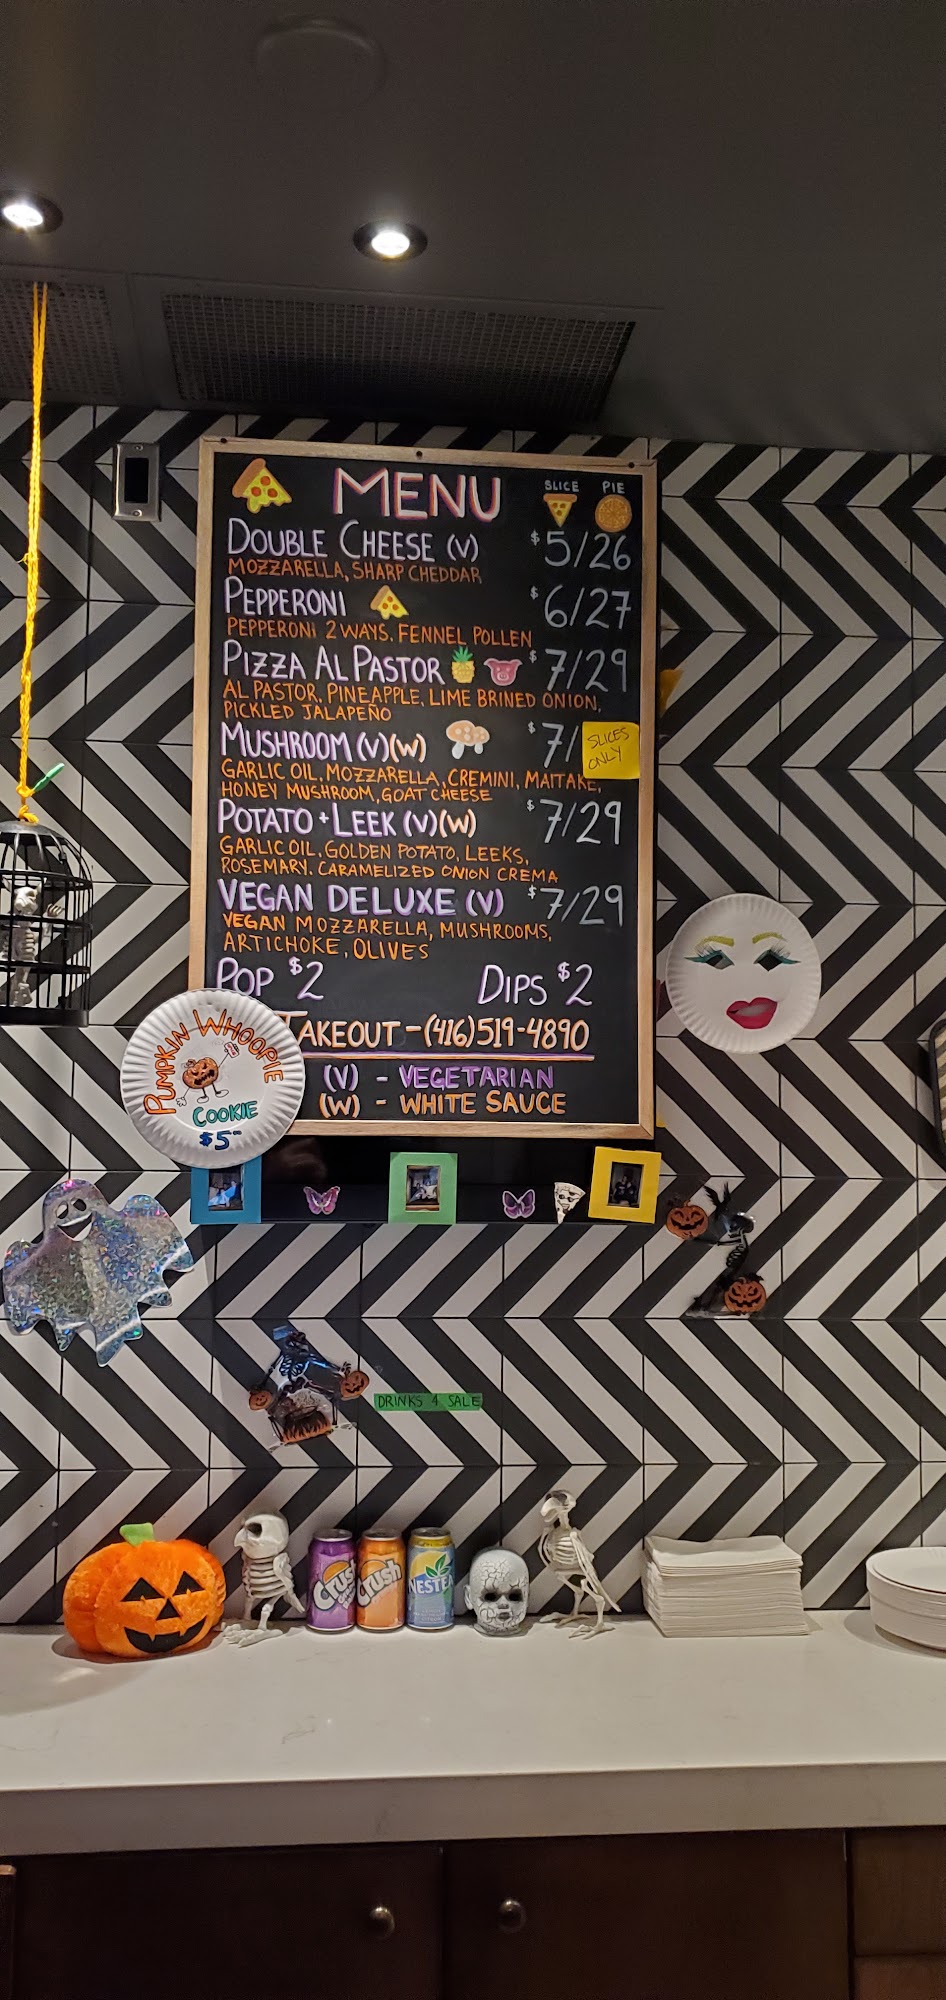 MENU
SLICE PIE
DOUBLE CHEESE (V) $5/26
MOZZARELLA, SHARP CHEDDAR
PEPPERONI $6/27
PEPPERONI 2 WAYS, FENNEL POLLEN
PIZZA AL PASTOR $7/29
AL PASTOR, PINEAPPLE, LIME BRINED ONION,
PICKLED JALAPEÑO
MUSHROOM (V)(W) $7/
SLICES
ONLY
GARLIC OIL, MOZZARELLA, CREMINI, MAITAKE,
HONEY MUSHROOM, GOAT CHEESE
POTATO + LEEK (V)(W) $7/29
GARLIC OIL, GOLDEN POTATO, LEEKS,
ROSEMARY, CARAMELIZED ONION CREMA
VEGAN DELUXE (V) $7/29
VEGAN MOZZARELLA, MUSHROOMS,
ARTICHOKE, OLIVES
POP $2 DIPS $2
TAKEOUT - (416) 519-4890
(V) - VEGETARIAN
(W) - WHITE SAUCE
PUMPKIN WHOOPIE
COOKIE
$5
DRINKS 4 SALE
Crush
Crush
NESTEA